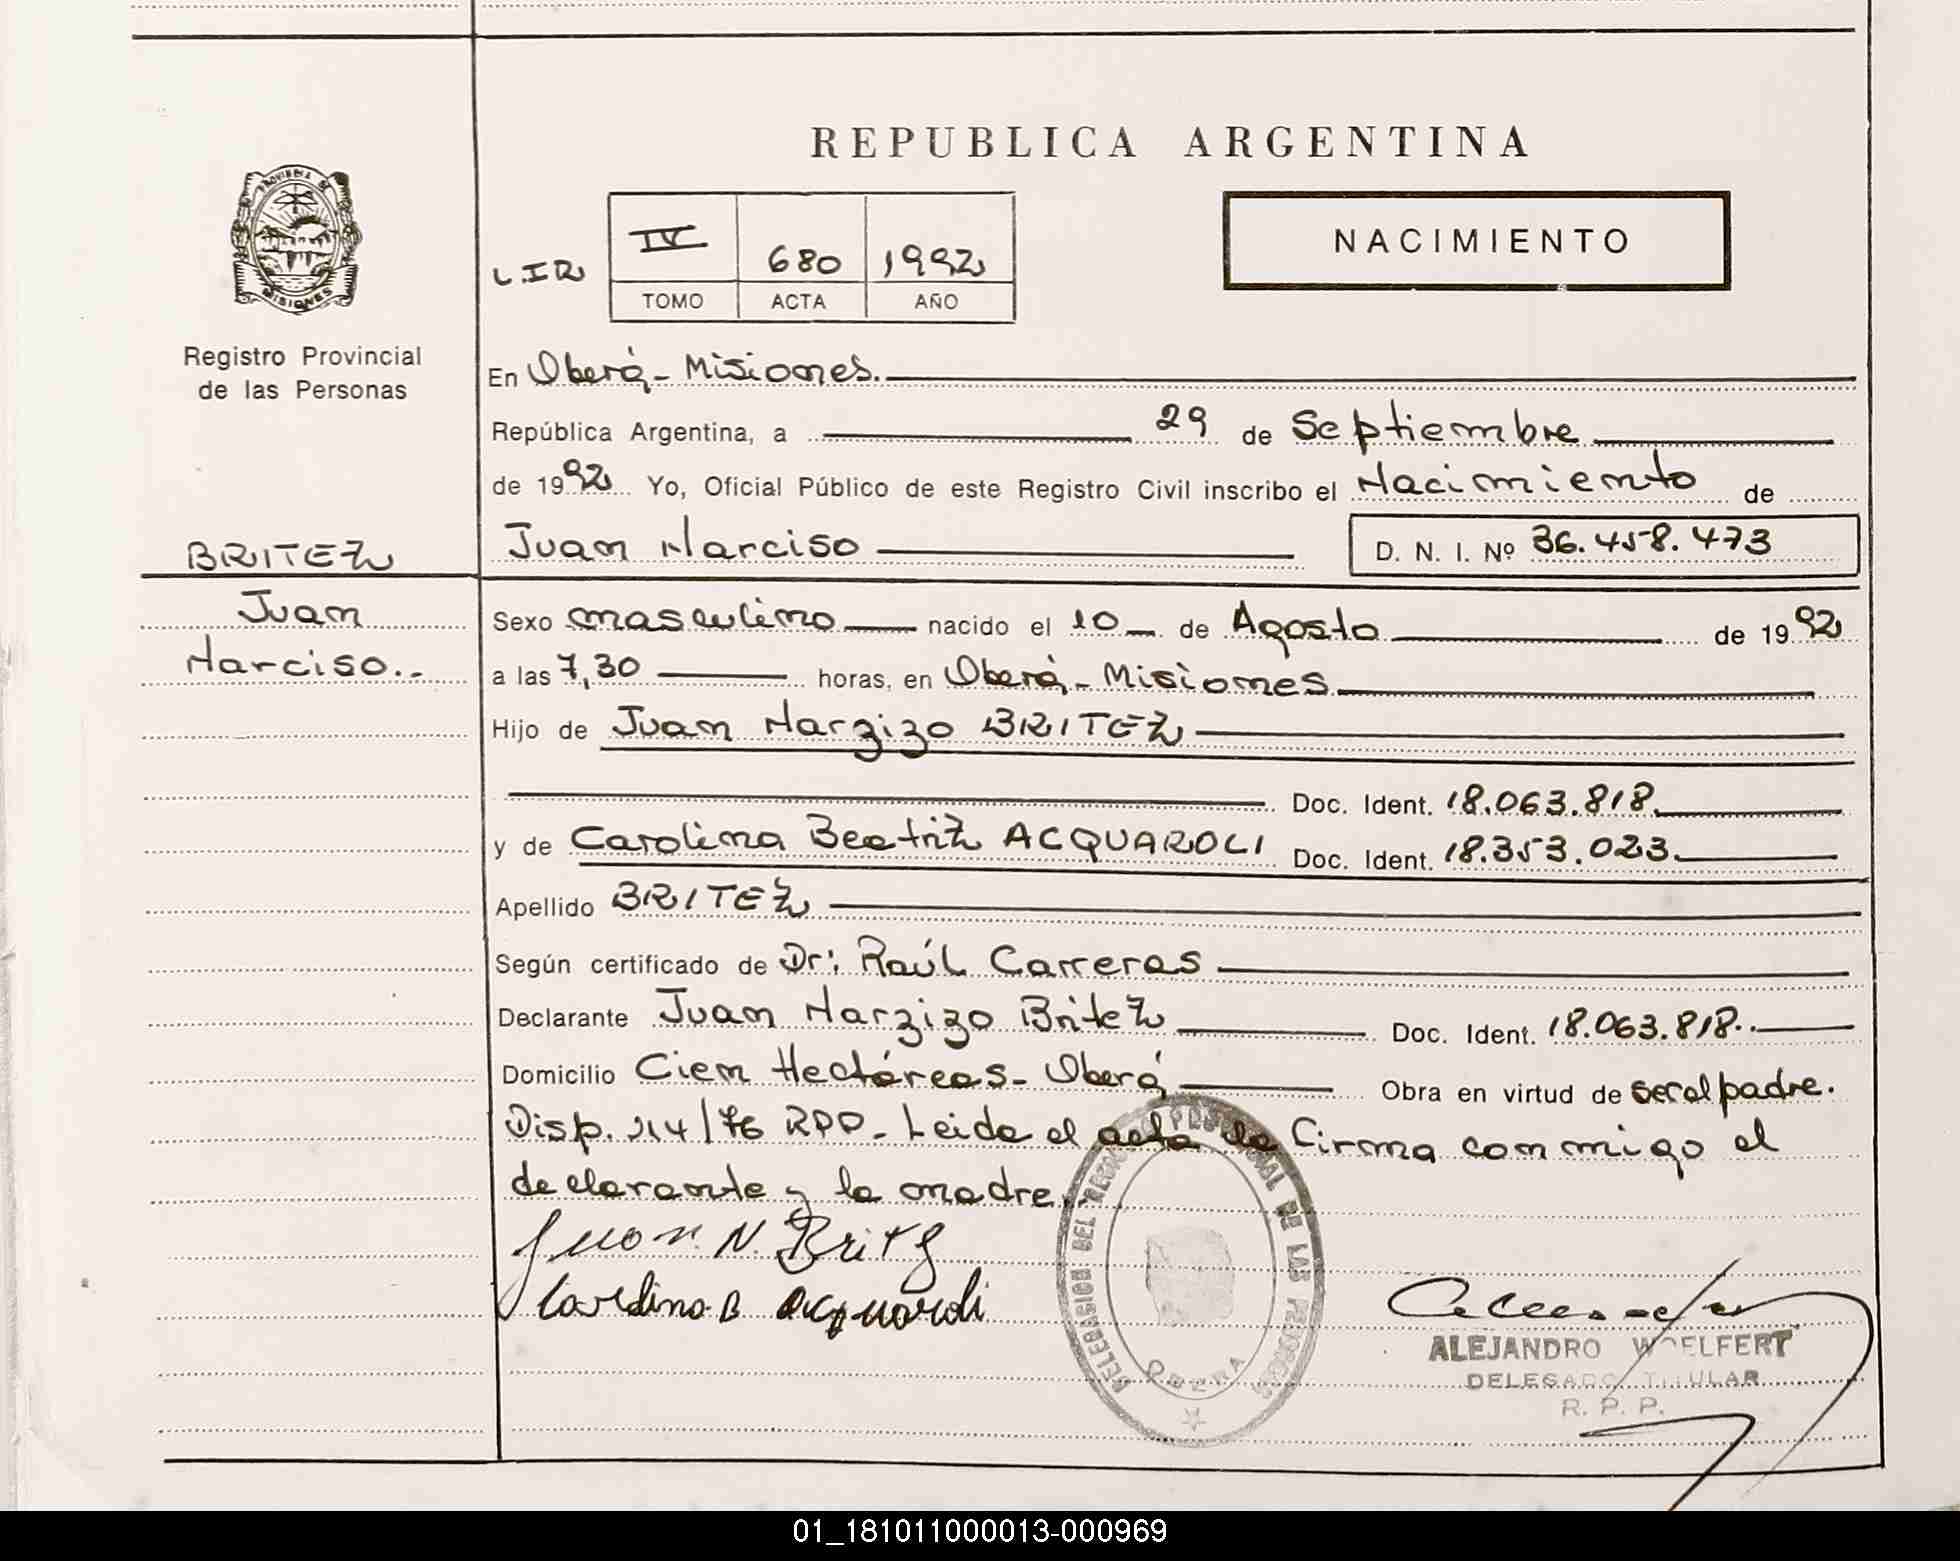 REPUBLICA ARGENTINA
PROVINCIA DE
MISIONES
Registro Provincial
de las Personas
L.I.R
IV 680 1992
TOMO ACTA AÑO
NACIMIENTO
En Oberá - Misiones.
República Argentina, a 29 de Septiembre
de 1992 Yo, Oficial Público de este Registro Civil inscribo el Nacimiento de
BRITEZ
Juan
Narciso.-
Juan Narciso D. N. I. Nº 36.458.473
Sexo masculino nacido el 10 de Agosto de 1992
a las 7,30 horas, en Oberá - Misiones
Hijo de Juan Narzizo BRITEZ
Doc. Ident. 18.063.818
y de Carolina Beatriz ACQUAROLI Doc. Ident. 18.353.023
Apellido BRITEZ
Según certificado de Dr: Raúl Carreras
Declarante Juan Narzizo Britez Doc. Ident. 18.063.818.
Domicilio Cien Hectáreas - Oberá Obra en virtud de ser el padre.
Disp. 214/76 RPP - Leida el acta la firma conmigo el
declarante y la madre.
Juan N. Britz
Carolina B Acquaroli
DELEGACION DEL REGISTRO PROVINCIAL DE LAS PERSONAS
OBERA
ALEJANDRO WOELFERT
DELEGADO TITULAR
R. P. P.
01_181011000013-000969